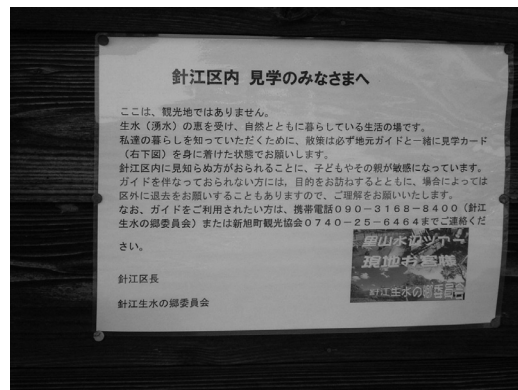 針江区内 見学のみなさまへ
ここは、観光地ではありません。
生水（湧水）の恵を受け、自然とともに暮らしている生活の場です。
私達の暮らしを知っていただくために、散策は必ず地元ガイドと一緒に見学カード
（右下図）を身に着けた状態でお願いします。
針江区内に見知らぬ方がおられることに、子どもやその親が敏感になっています。
ガイドを伴なっておられない方には，目的をお訪ねするとともに、場合によっては
区外に退去をお願いすることもありますので、ご理解をお願いいたします。
なお、ガイドをご利用されたい方は、携帯電話０９０－３１６８－８４００（針江
生水の郷委員会）または新旭町観光協会０７４０－２５－６４６４までご連絡くだ
さい。
里山水のツアー
現地お客様
針江生水の郷委員会
針江区長
針江生水の郷委員会